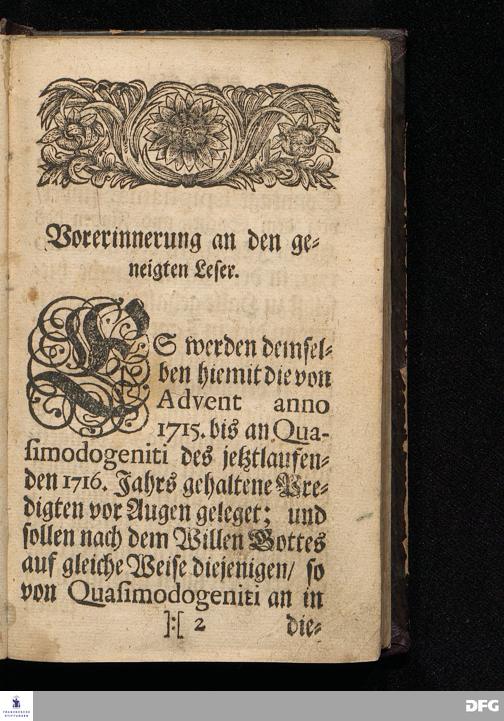 Vorerinnerung an den ge-
neigten Leser.
ES werden demsel-
ben hiemit die von
Advent anno
1715. bis an Qua-
simodogeniti des jetztlaufen-
den 1716. Jahrs gehaltene Pre-
digten vor Augen geleget; und
sollen nach dem Willen Gottes
auf gleiche Weise diejenigen/ so
von Quasimodogeniti an in
]:[ 2 die-
FRANCKESCHE
STIFTUNGEN
DFG